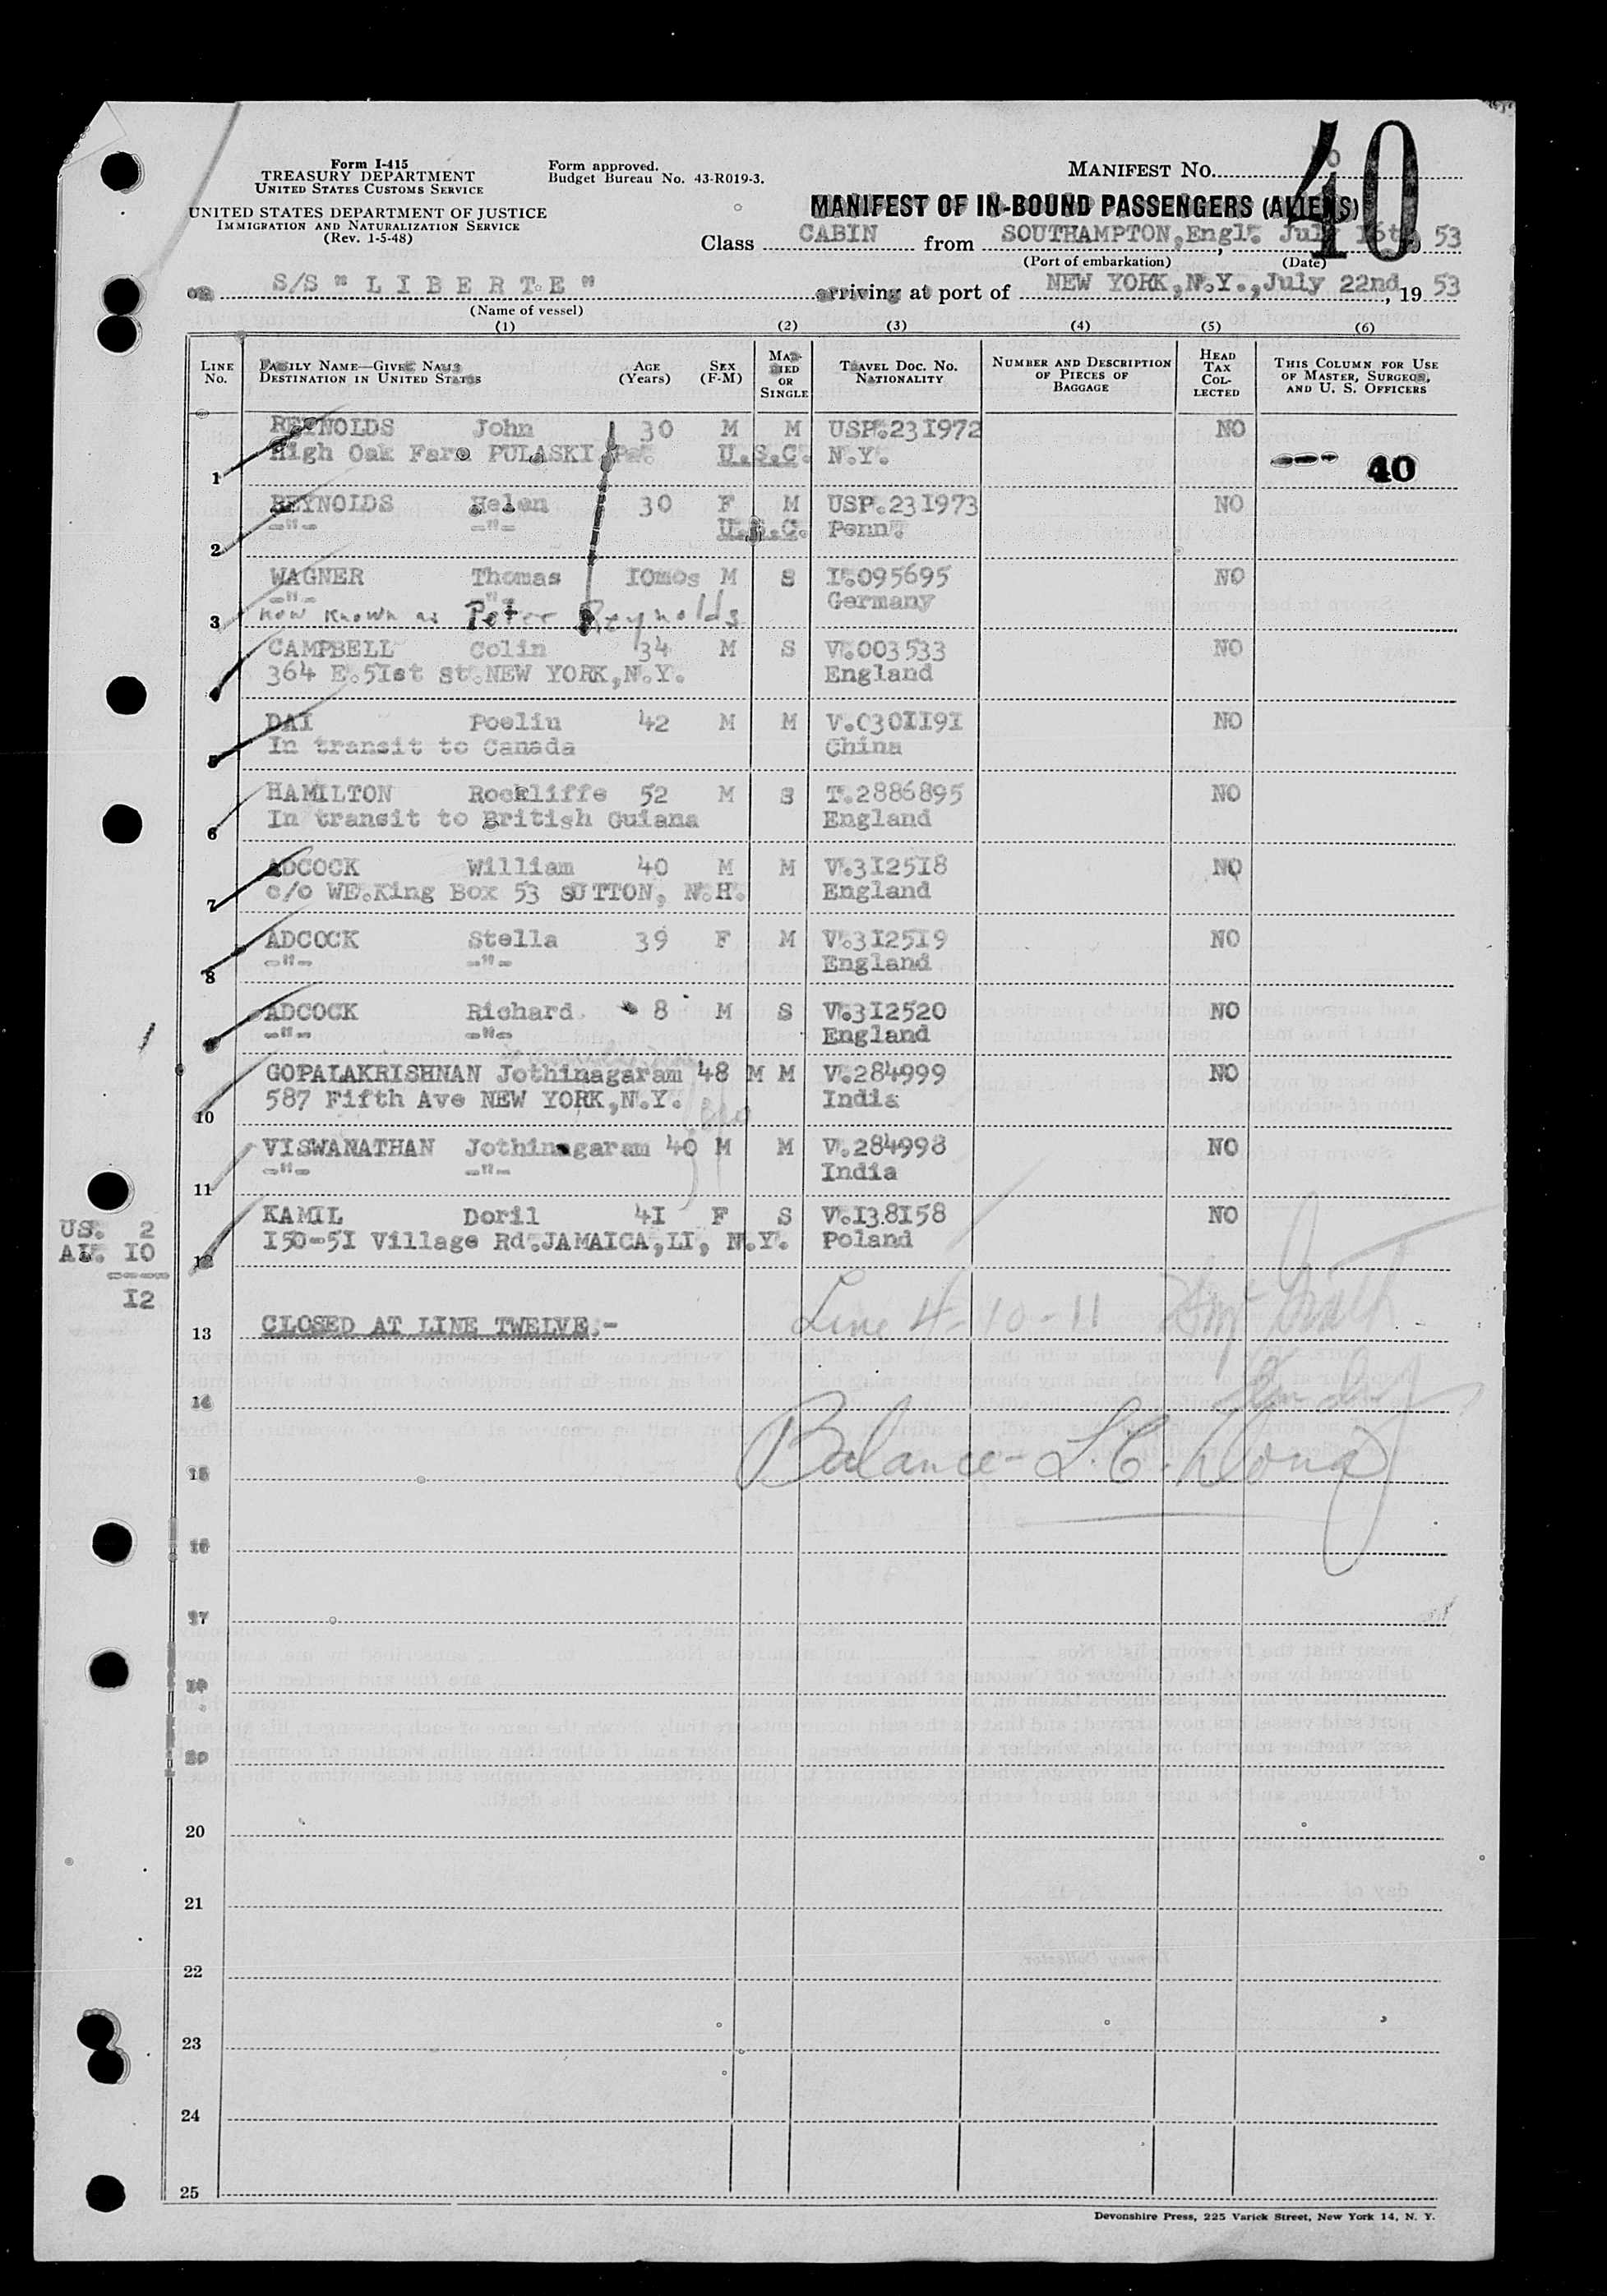 Form I-415
TREASURY DEPARTMENT
UNITED STATES CUSTOMS SERVICE
UNITED STATES DEPARTMENT OF JUSTICE
IMMIGRATION AND NATURALIZATION SERVICE
(Rev. 1-5-48)
Form approved.
Budget Bureau No. 43-R019-3.
MANIFEST NO. 40
MANIFEST OF IN-BOUND PASSENGERS (ALIENS)
Class CABIN from SOUTHAMPTON, Engl. July 16th 53
(Port of embarkation) (Date)
on S/S "LIBERTE" arriving at port of NEW YORK, N.Y., July 22nd, 19 53
(Name of vessel)
(1) (2) (3) (4) (5) (6)
LINE NO. FAMILY NAME—GIVEN NAME DESTINATION IN UNITED STATES AGE (Years) SEX (F-M) MARRIED OR SINGLE TRAVEL DOC. NO. NATIONALITY NUMBER AND DESCRIPTION OF PIECES OF BAGGAGE HEAD TAX COLLECTED THIS COLUMN FOR USE OF MASTER, SURGEON, AND U. S. OFFICERS
REYNOLDS John 30 M M USP.231972 NO
1 High Oak Farm PULASKI Pa. U.S.C. N.Y. 40
REYNOLDS Helen 30 F M USP.231973 NO
2 -"- -"- U.S.C. Penn.
WAGNER Thomas 10mos M S I.095695 NO
-"- -"- Germany
3 now known as Peter Reynolds
CAMPBELL Colin 34 M S V.003533 NO
4 364 E.51st st.NEW YORK,N.Y. England
DAI Poeliu 42 M M V.0301191 NO
5 In transit to Canada China
HAMILTON Rockliffe 52 M S T.2886895 NO
6 In transit to British Guiana England
ADCOCK William 40 M M V.312518 NO
7 c/o WE.King Box 53 SUTTON, N.H. England
ADCOCK Stella 39 F M V.312519 NO
8 -"- -"- England
ADCOCK Richard 8 M S V.312520 NO
9 -"- -"- England
GOPALAKRISHNAN Jothinagaram 48 M M V.284999 NO
10 587 Fifth Ave NEW YORK,N.Y. India
VISWANATHAN Jothinagaram 40 M M V.284998 NO
11 -"- -"- India
KAMIL Doril 41 F S V.138158 NO
12 150-51 Village Rd.JAMAICA,LI, N.Y. Poland
US. 2
AL. 10
----
12
13 CLOSED AT LINE TWELVE.- Line 4-10-11
14
15 Balance - L.C.
16
17
18
19
20
21
22
23
24
25
Devonshire Press, 225 Varick Street, New York 14, N. Y.